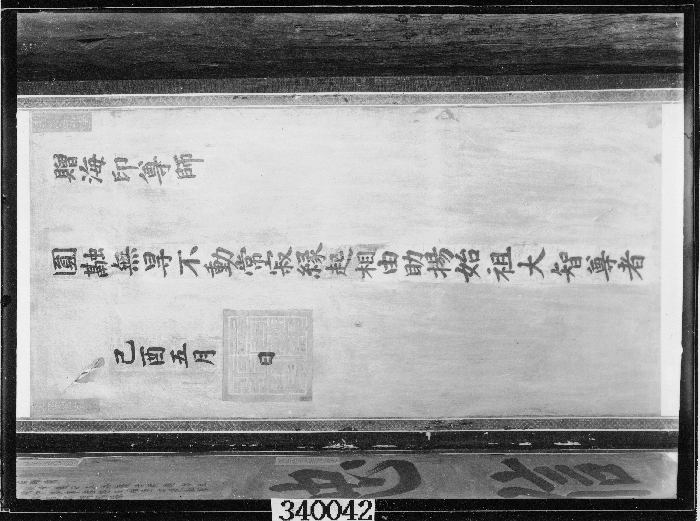 贈海印尊師
圓融無㝵不動常寂緣起相由助揚始祖大智尊者
己酉五月 日
340042